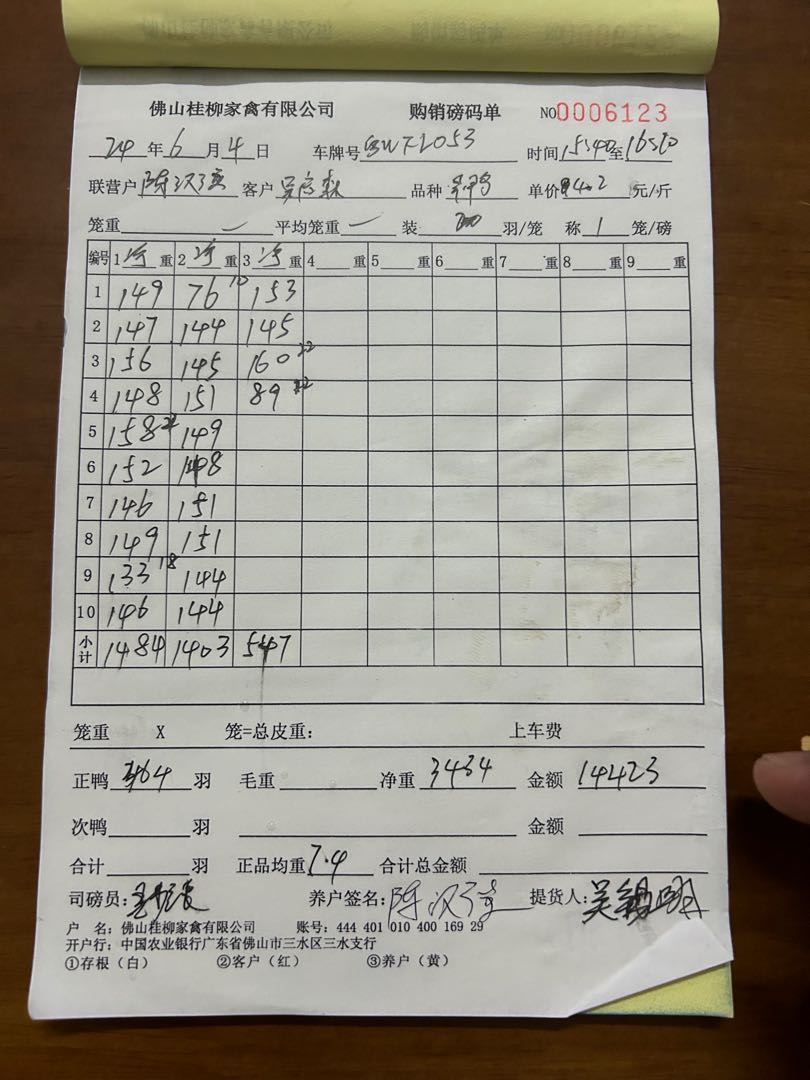 佛山桂柳家禽有限公司 购销磅码单 NO0006123
24年6月4日 车牌号 时间15:40至16:50
联营户 客户 品种 单价4.2元/斤
笼重 一 平均笼重 一 装 20 羽/笼 称 1 笼/磅
编号 1 净 重 2 净 重 3 净 重 4 重 5 重 6 重 7 重 8 重 9 重
1 149 76 10 153
2 147 144 145
3 156 145 160 22
4 148 151 89 12
5 158 22 149
6 152 148
7 146 151
8 149 151
9 133 18 144
10 146 144
小计 1484 1403 547
笼重 X 笼=总皮重: 上车费
正鸭 464 羽 毛重 净重 3434 金额 14423
次鸭 羽 金额
合计 羽 正品均重 7.4 合计总金额
司磅员: 养户签名: 陈汉 提货人: 吴
户 名: 佛山桂柳家禽有限公司 账号: 444 401 010 400 169 29
开户行: 中国农业银行广东省佛山市三水区三水支行
①存根(白) ②客户(红) ③养户(黄)